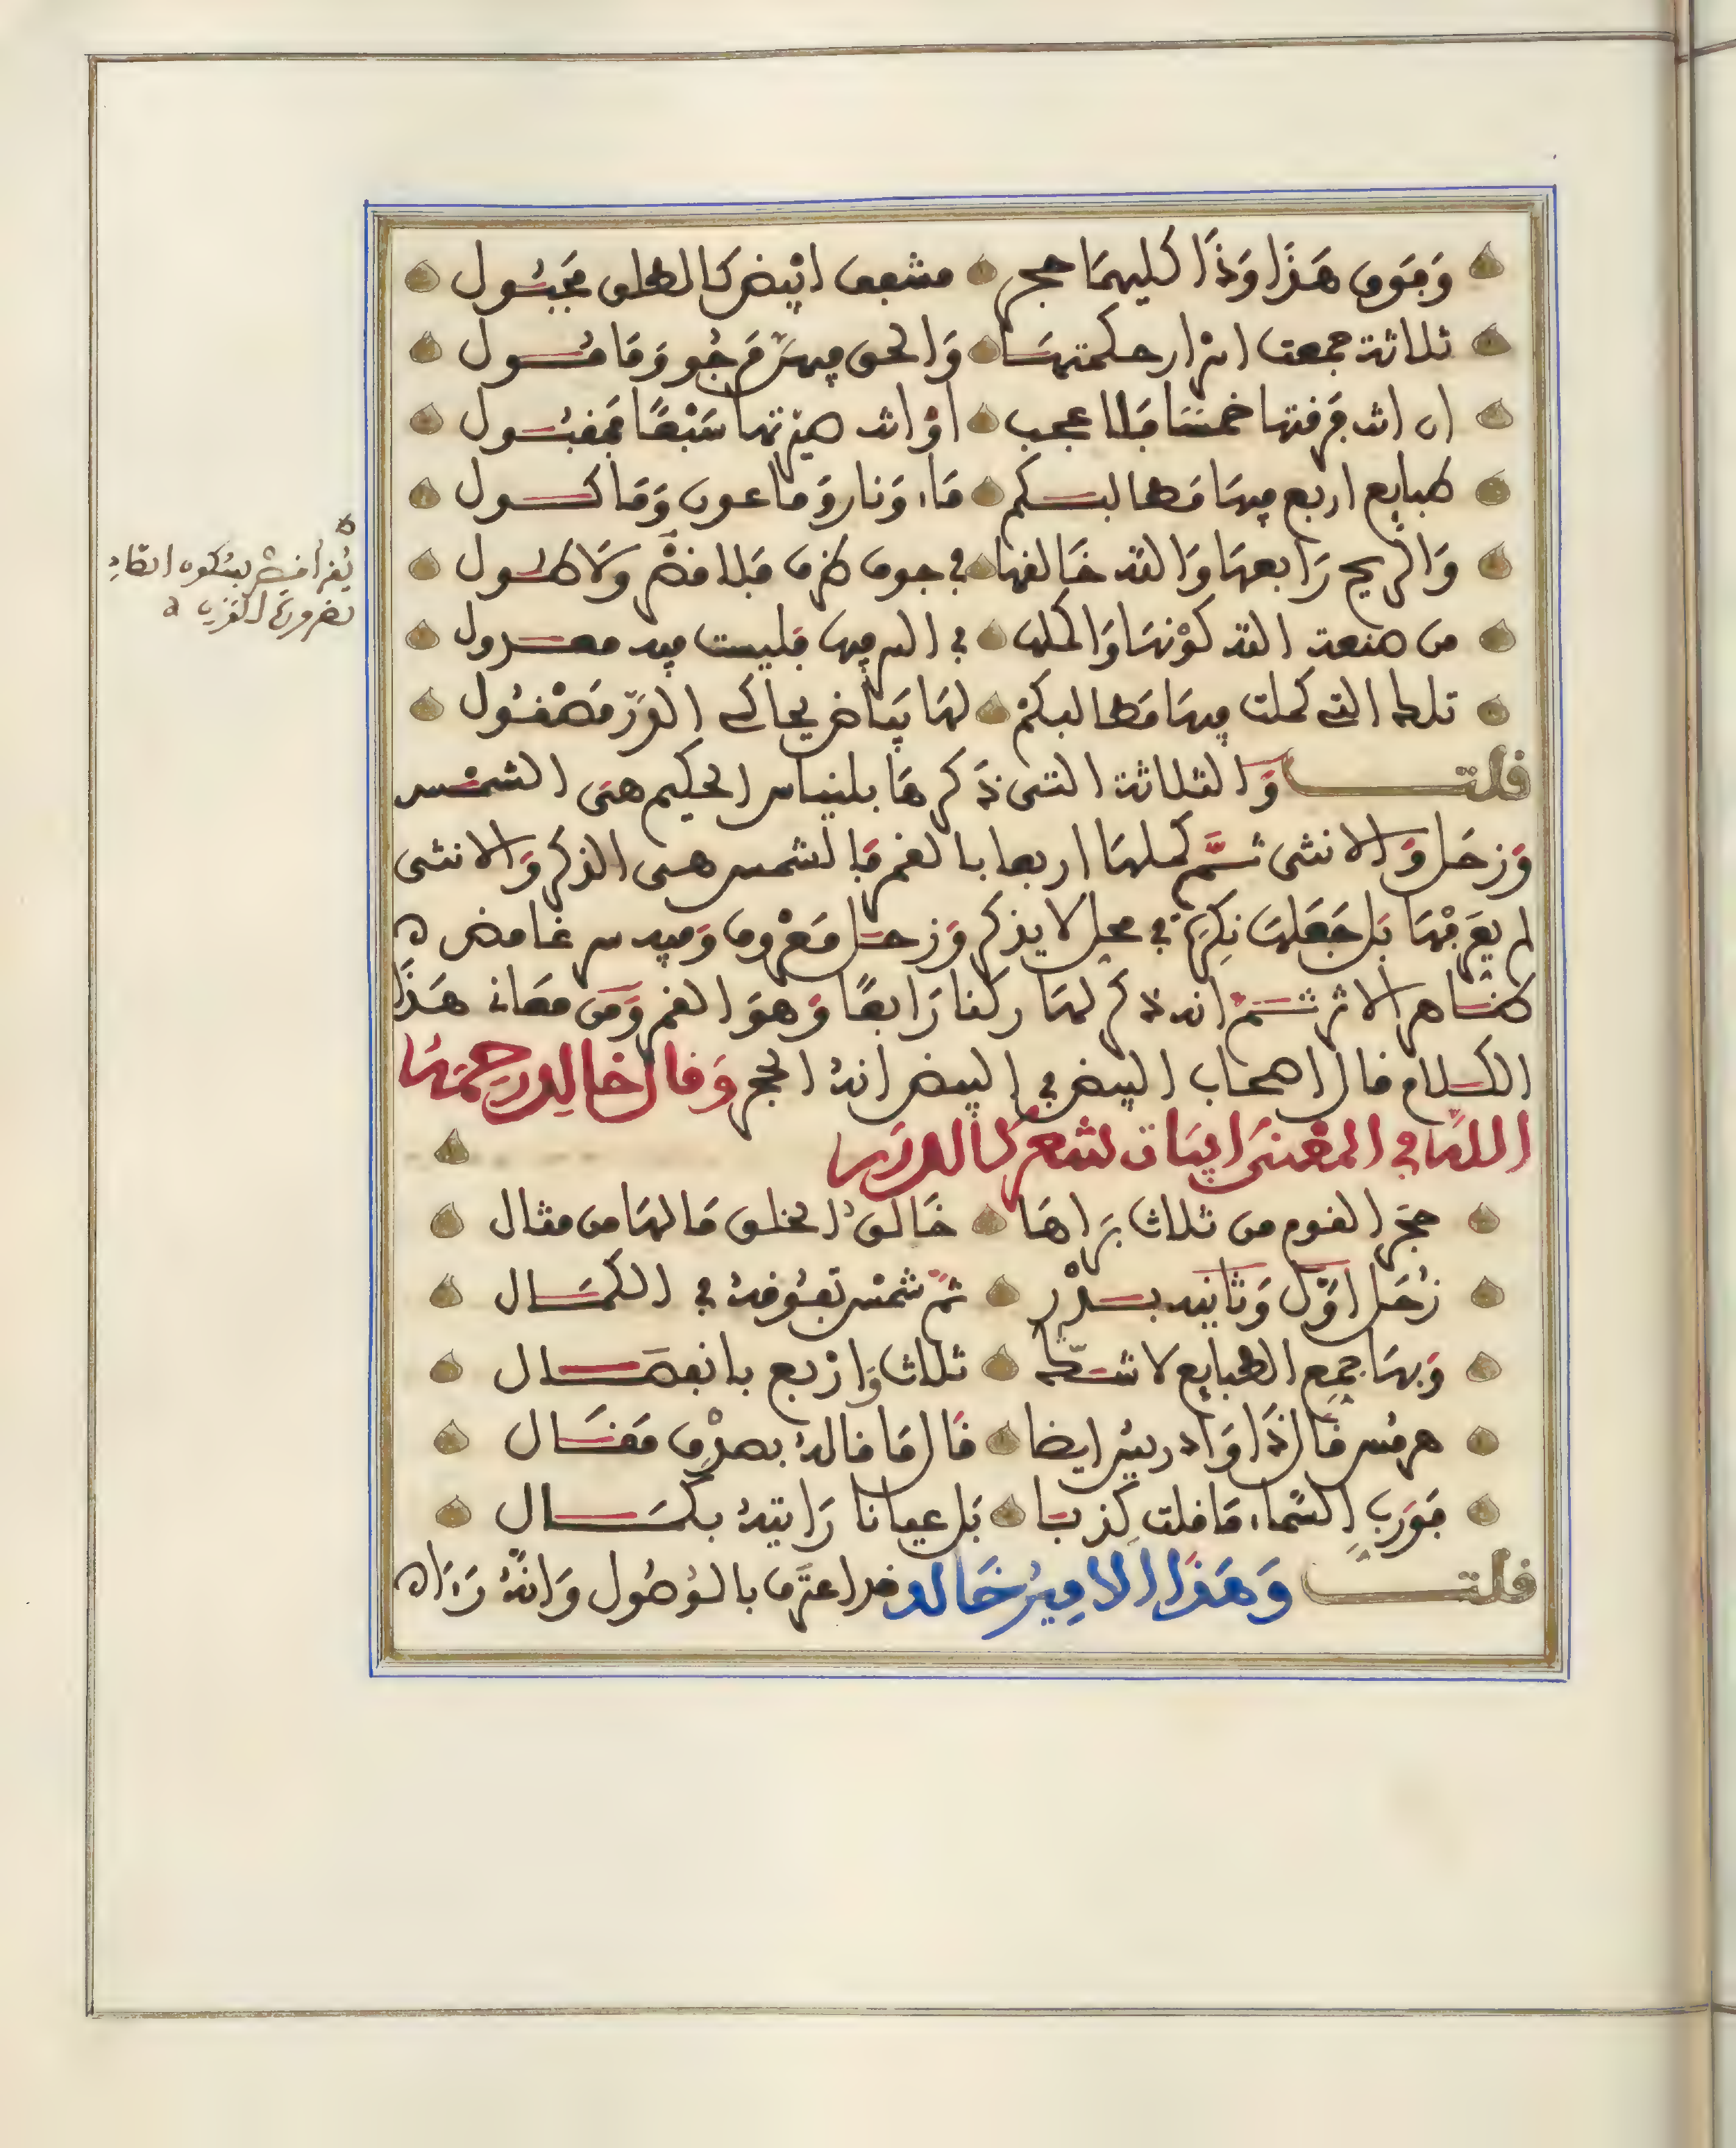 وَفَوق هَذَا وَذَا كليهمَا حجر مشفف ابْيض كَالطلق مَجبُول
ثلاثة جمعت اسْرار حكمتهَا وَالحق فيهنّ مَرجُو وَمَامُول
ان انت فرقتها خمسا فَلا عجب اوْ انت صيّرتها سَبْعًا فمقبُول
طبايع اربع فيهَا مَطالبكم مَاء وَنار وَماعون وَمَاكول
وَالريح رَابعهَا وَالله خَالقهَا في جوف ظرف فَلا قصْر وَلا طُول
من صنعة الله كوْنهَا وَاكملها في السر فيها فليست فيه معزول
تلك التي كملت فيهَا مَطالبكمْ لهَا بيَاض يحاكي الدرّ مَصْقُول
قلت وَالثلاثة التي ذَكرهَا بلنياس الحكيم هي الشمْس
وَزحَل وَالانثى ثمَّ كملهَا اربعا بالقمر فَالشمس هي الذكر وَالانثى
لم يعَرفْهَا بَل جَعَلهَا نكِرَة في محل لا يذكر وَزحَل مَعْروف وَفيه سر غامض ه
ظَاهر الاثر ثمْ انه ذكر لهَا ركنا رَابعًا وَهوَ القمر وَمن معَاني هَذَا
الكلام قال اصحاب البيض في البيض انهُ الحجر وَقال خالد رحمَهُ
اللهُ في المعْنى ابيَات لشعر كالدرَر
حجَر القوم من ثلاث بَراهَا خَالق الخلق مَا لهَا من مثال
زُحَل اوّل وَثانيه بدْر ثمّ شمْس تفُوقهُ في الكمَال
وَبهَا جمِع الطبايع لا شكّ ثلاث وَارْبع بانفصَال
هرمُس قَال ذَا وَادريس ايضا قَال مَا قالهُ بصدْقِ مَقَال
فَوَرَبِ السَّماء مَا قلت كِذبا بَل عيانا رَايتهُ بكمَال
قلت وَهَذا الامِيرُ خَالد قد اعترَف بالوُصُول وَانّهُ رَءَاه